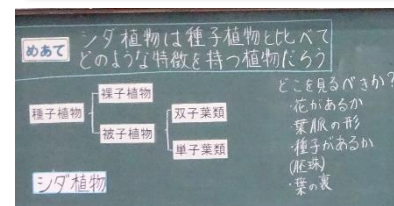 めあて
シダ植物は種子植物と比べて
どのような特徴を持つ植物だろう
種子植物
裸子植物
被子植物
双子葉類
単子葉類
シダ植物
どこを見るべきか?
・花があるか
・葉脈の形
・種子があるか
(胚珠)
・葉の裏